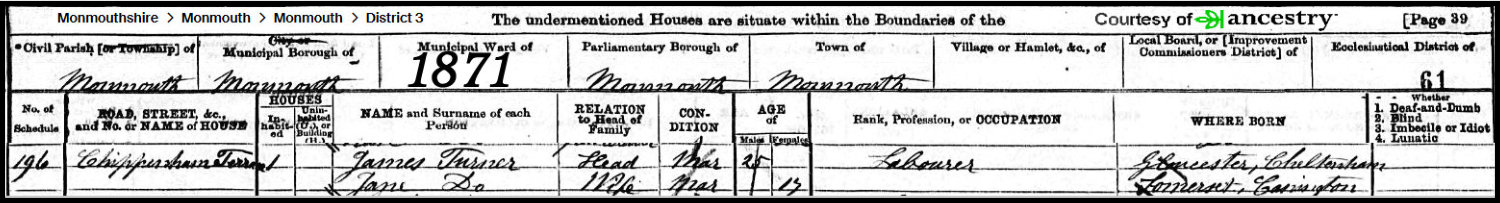 Monmouthshire > Monmouth > Monmouth > District 3
The undermentioned Houses are situate within the Boundaries of the
Courtesy of ancestry
[Page 39
Civil Parish [or Township] of
City or Municipal Borough of
Municipal Ward of
Parliamentary Borough of
Town of
Village or Hamlet, &c., of
Local Board, or [Improvement Commissioners District] of
Ecclesiastical District of
Monmouth Monmouth 1871 Monmouth Monmouth 61
No. of Schedule
ROAD, STREET, &c., and No. or NAME of HOUSE
HOUSES
Inhabited
Uninhabited (U.), or Building (B.)
NAME and Surname of each Person
RELATION to Head of Family
CONDITION
AGE of
Males Females
Rank, Profession, or OCCUPATION
WHERE BORN
Whether
1. Deaf-and-Dumb
2. Blind
3. Imbecile or Idiot
4. Lunatic
196 Chippenham Terrace 1 James Turner Head Mar 25 Labourer Gloucester, Cheltenham
Jane Do Wife Mar Somerset,